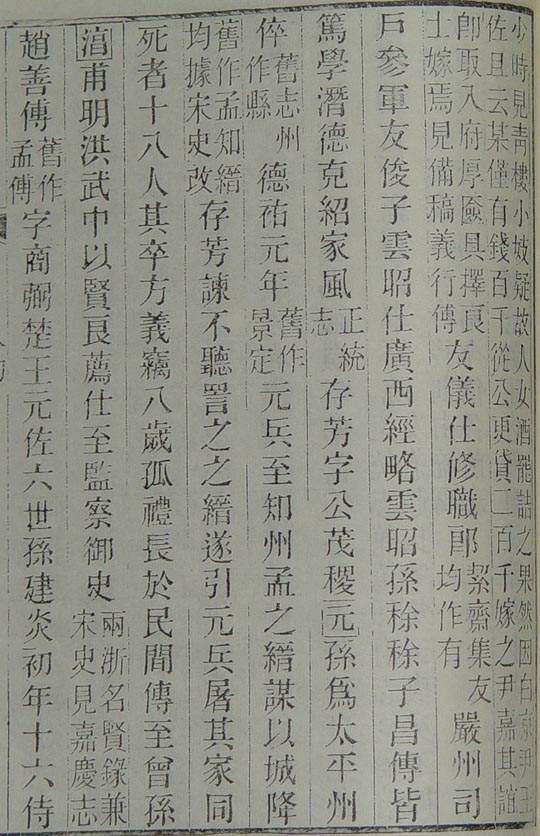 少時見靑樓小妓疑故人女酒罷詰之果然因白京尹王
佐且云某僅有錢百千從公更貸二百千嫁之尹嘉其誼
卽取入府厚匳具擇良
士嫁焉見備稿義行傳
友儀仕修職郎
絜齋集友
均作有
嚴州司
戶參軍友俊子雲昭仕廣西經略雲昭孫稌稌子昌傳皆
篤學潛德克紹家風
正統
志
存芳字公茂稷元孫爲太平州
倅
舊志州
作縣
德祐元年
舊作
景定
元兵至知州孟之縉謀以城降
舊作孟知縉
均據宋史改
存芳諫不聽詈之之縉遂引元兵屠其家同
死者十八人其卒方義竊八歲孤禮長於民間傳至曾孫
淯甫明洪武中以賢良薦仕至監察御史
兩浙名賢錄兼
宋史見嘉慶志
趙善傅
舊作
孟傅
字商弼楚王元佐六世孫建炎初年十六侍